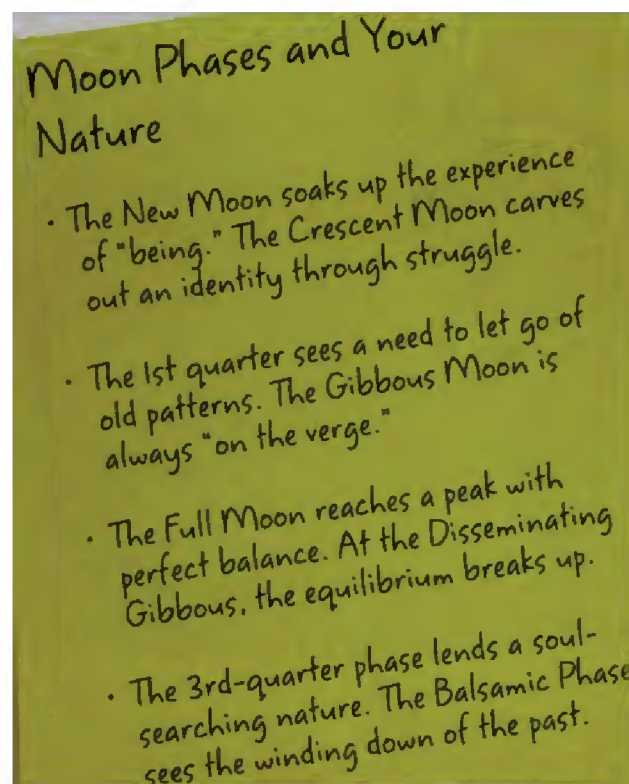 Moon Phases and Your
Nature
· The New Moon soaks up the experience
of "being." The Crescent Moon carves
out an identity through struggle.
· The 1st quarter sees a need to let go of
old patterns. The Gibbous Moon is
always "on the verge."
· The Full Moon reaches a peak with
perfect balance. At the Disseminating
Gibbous, the equilibrium breaks up.
· The 3rd-quarter phase lends a soul-
searching nature. The Balsamic Phase
sees the winding down of the past.